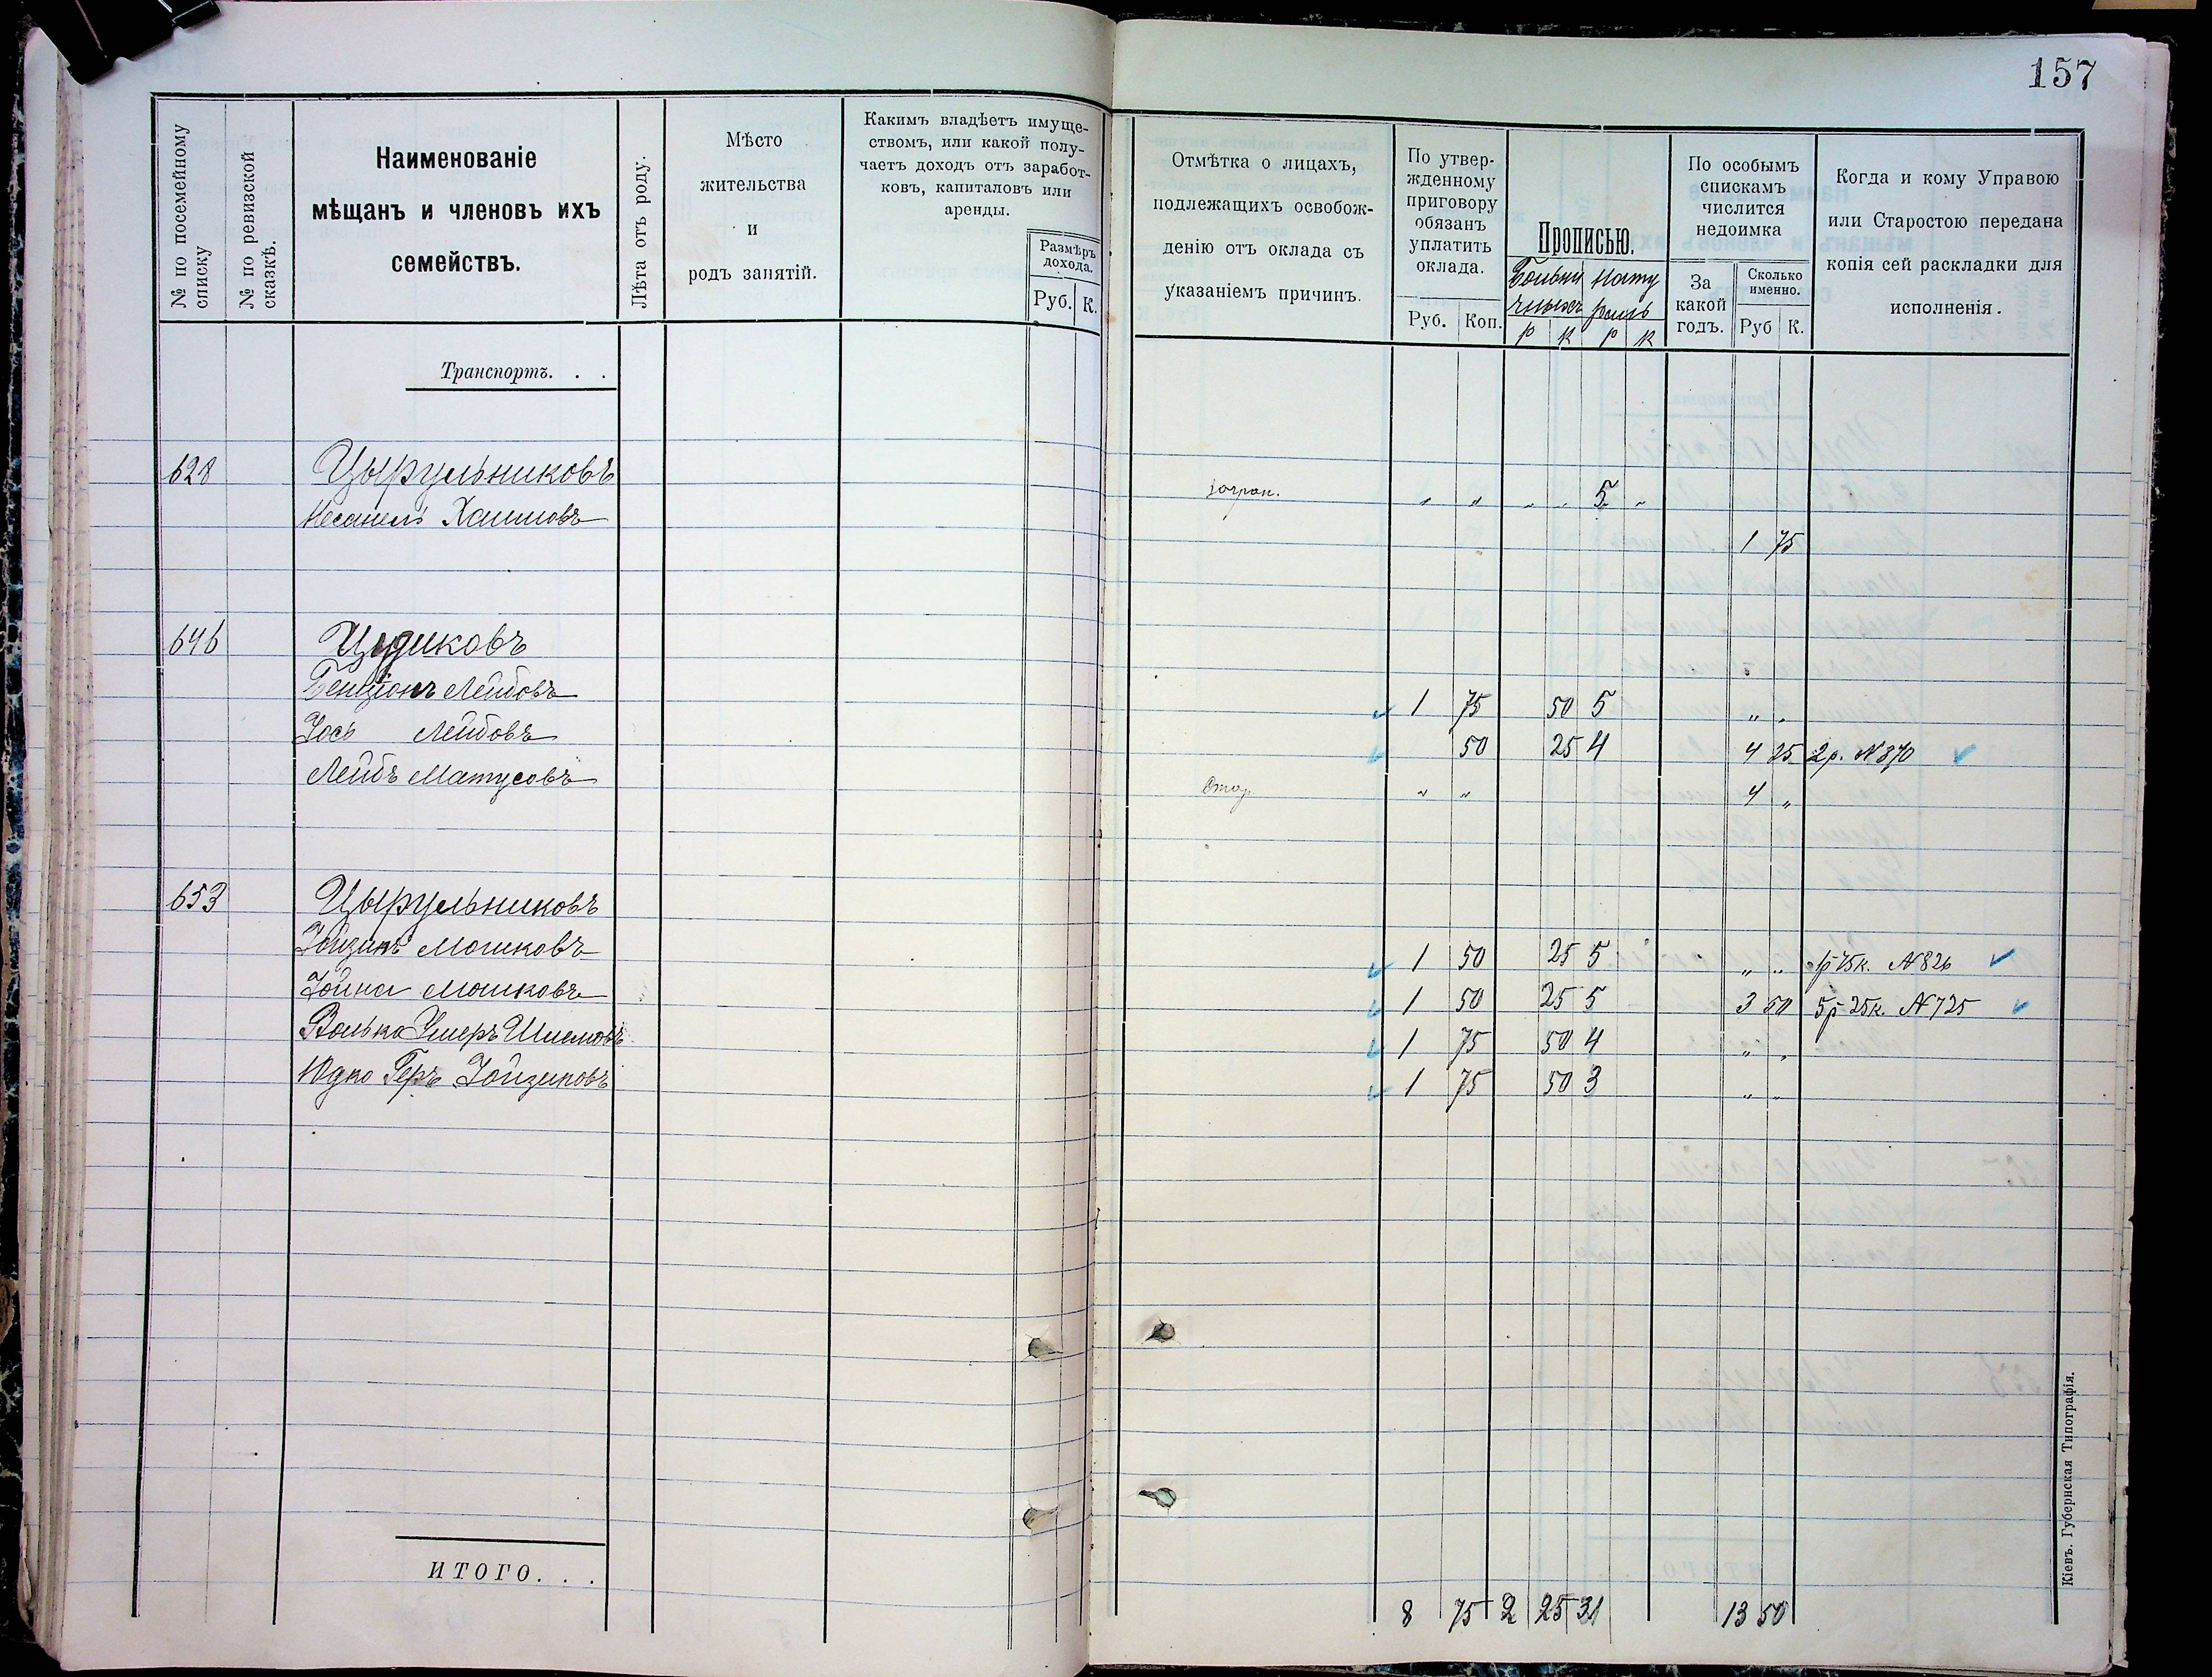 157
№ по посемейному списку
№ по ревизской сказкѣ.
Наименованіе
мѣщанъ и членовъ ихъ
семействъ.
Лѣта отъ роду.
Мѣсто
жительства
и
родъ занятій.
Какимъ владѣетъ имуще-
ствомъ, или какой полу-
чаетъ доходъ отъ заработ-
ковъ, капиталовъ или
аренды.
Размѣръ
дохода.
Руб. К.
Отмѣтка о лицахъ,
подлежащихъ освобож-
денію отъ оклада съ
указаніемъ причинъ.
По утвер-
жденному
приговору
обязанъ
уплатить
оклада.
Руб. Коп.
Прописью.
р к р к
По особымъ
спискамъ
числится
недоимка
За
какой
годъ.
Сколько
именно.
Руб К.
Когда и кому Управою
или Старостою передана
копія сей раскладки для
исполненія.
Транспортъ. . .
628 Цырульниковъ
Несанелъ Хаимовъ загран. " " " " 5 "
1 75
646 Цудиковъ
Бенціонъ Лейбовъ 1 75 50 5 " "
Іось Лейбовъ 50 25 4 4 25 2р. N 870
Лейбъ Матусовъ " " 4 "
653 Цырульниковъ
Іойзикъ Мошковъ 1 50 25 5 " " 1р 75к. N 826
Іойна Мошковъ 1 50 25 5 3 50 5р 25к. N 725
Волько Умеръ Шлемовъ 1 75 50 4 " "
Юдко Геръ Іойзиковъ 1 75 50 3 " "
ИТОГО. . .
8 75 2 25 31 13 50
Кіевъ. Губернская Типографія.